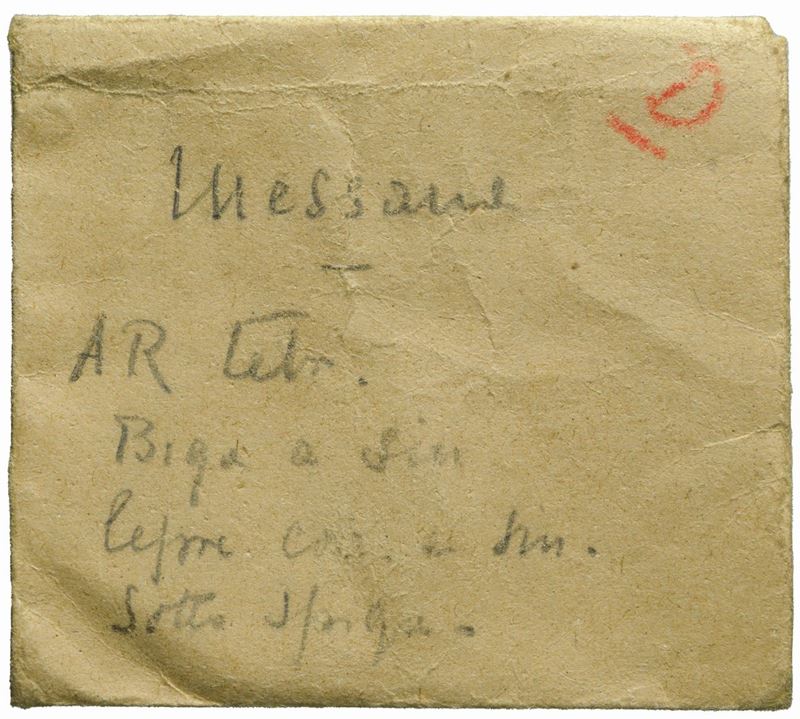 Messana
AR tetr.
Biga a sin
lepre cor. a sin.
Sotto spiga.